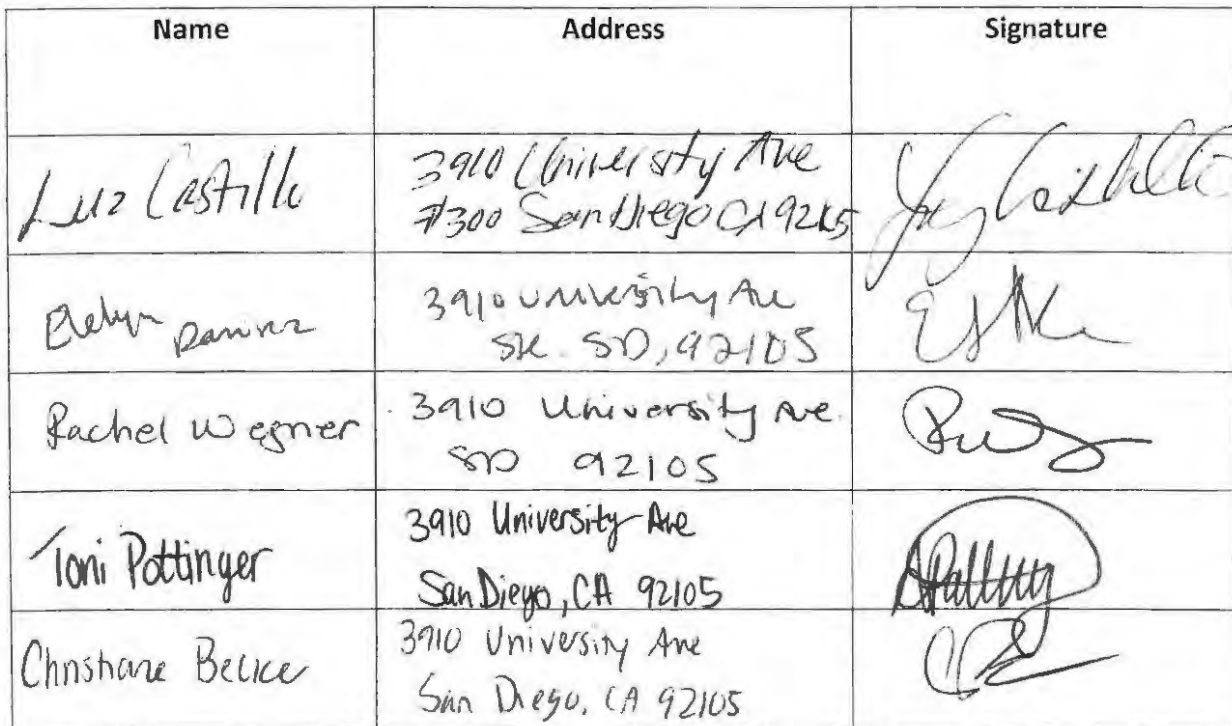 Name Address Signature
Luz Castillo
3910 University Ave
#300 San Diego CA 92105
Evelyn Ramirez
3910 University Ave
Ste. SD, 92105
Rachel Wegner
3910 University Ave.
SD 92105
Toni Pottinger
3910 University Ave
San Diego, CA 92105
Christiane
3910 University Ave
San Diego, CA 92105